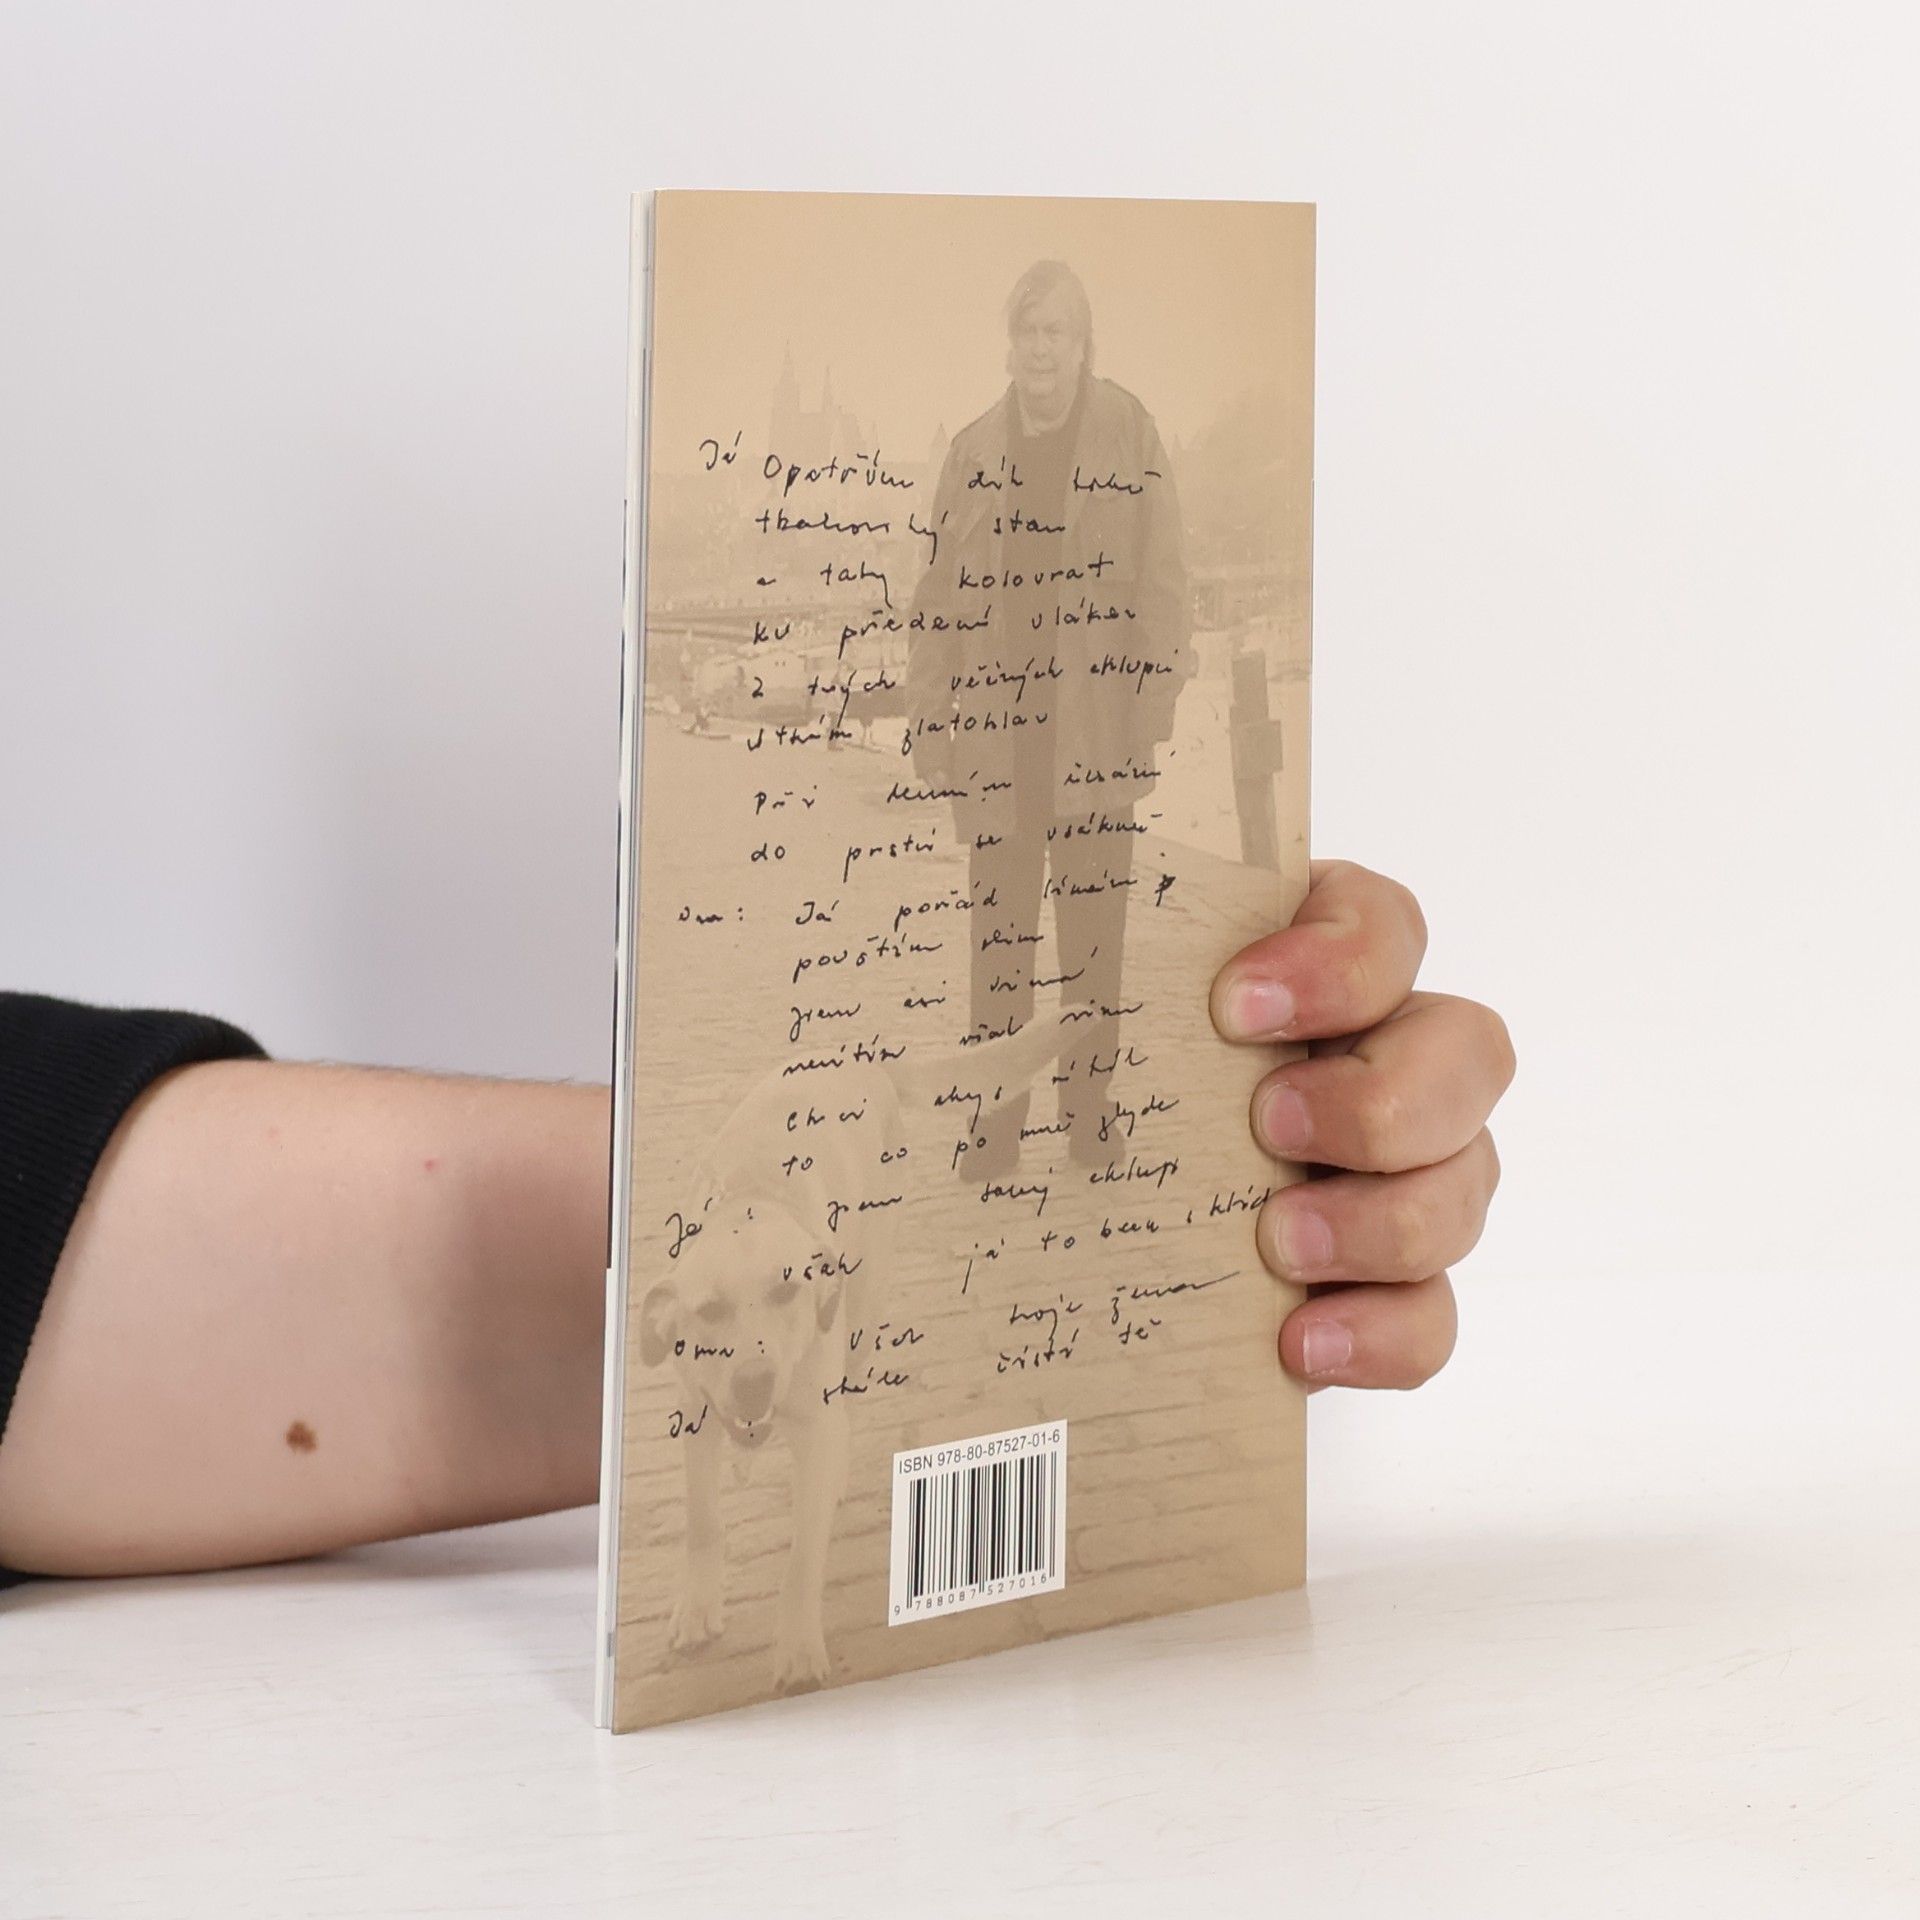 Já Opatřím dík tobě
tkalcovský stav
a taky kolovrat
ku předení vláken
z tvých věčných chlupů
utkám zlatohlav
Při denním česání
do prstů se vsákneš
Ona: Já pořád línám
pouštím
jsem asi
necítím však vinu
Chci abys
to co po mně zbyde
Já: jsem samý chlup
však já to beru s
Ona: Však tvoje žena
stále čistí tě
Já :
ISBN 978-80-87527-01-6
9 788087 527016